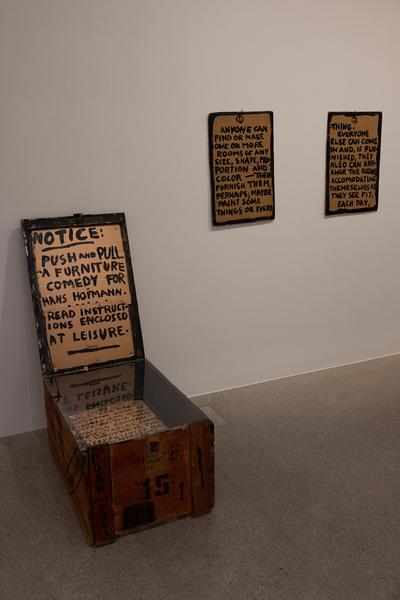 NOTICE:
PUSH AND PULL
-A FURNITURE
COMEDY FOR
HANS HOFMANN.
READ INSTRUCT-
IONS ENCLOSED
AT LEISURE.
15
1
ANYONE CAN
FIND OR MAKE
ONE OR MORE
ROOMS OF ANY
SIZE, SHAPE, PRO-
PORTION AND
COLOR — THEN
FURNISH THEM,
PERHAPS; MAYBE
PAINT SOME
THINGS OR EVERY
2
THING.
EVERYONE
ELSE CAN COME
IN AND, IF FUR-
NISHED, THEY
ALSO CAN ARR-
ANGE THE ROOMS
ACCOMODATING
THEMSELVES AS
THEY SEE FIT.
EACH DAY,